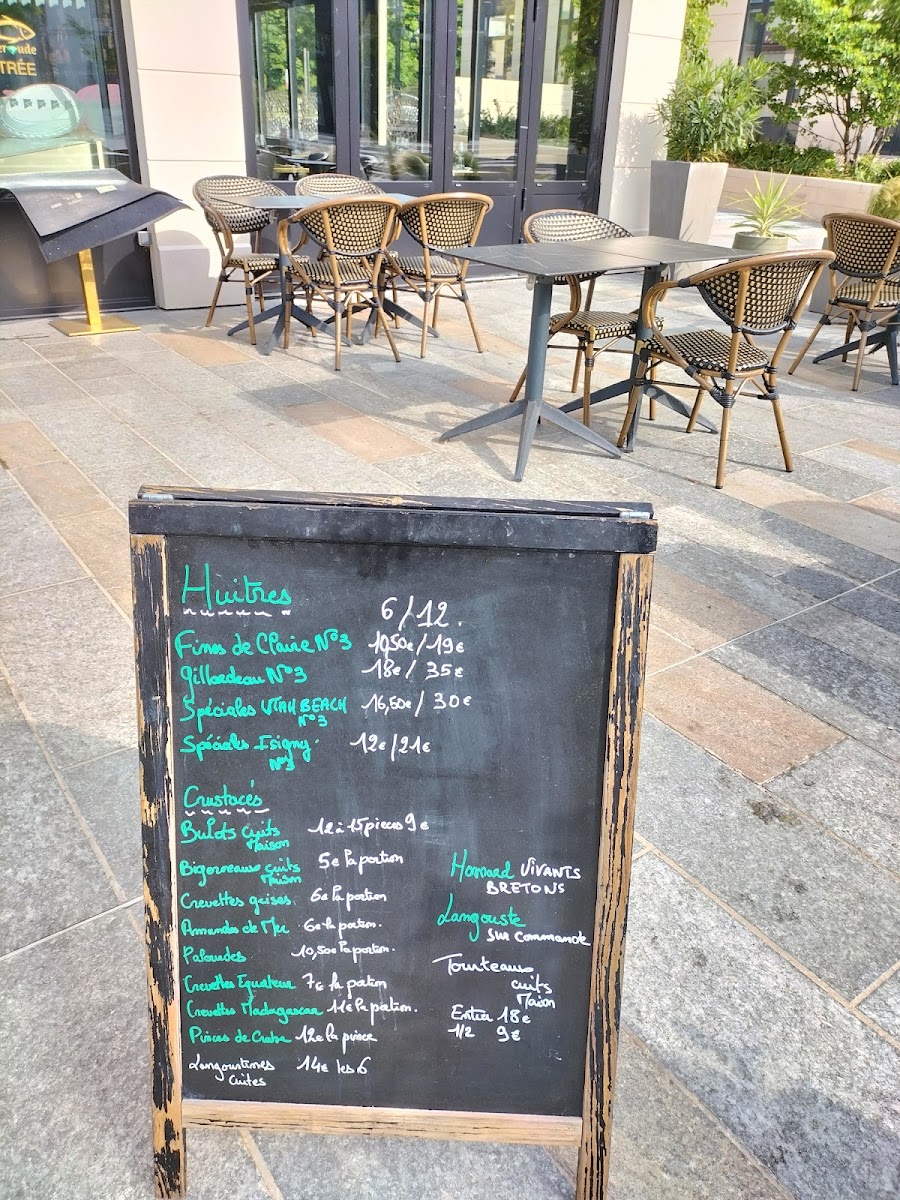 TRÉE
Huitres
6/12.
Fines de Claire N°3 10,50€/19€
Gillardeau N°3 18€/ 35€
Spéciales UTAH BEACH N°3 16,50€/ 30€
Spéciales Isigny N°3 12€/21€
Crustacés
Bulots cuits Maison 12 à 15 pieces 9€
Bigorneaux cuits Maison 5€ la portion
Crevettes grises 6€ la portion
Amandes de Mer 6€ la portion.
Palourdes 10,50€ la portion.
Crevettes Equateur 7€ la portion
Crevettes Madagascar 11€ la portion.
Pinces de Crabe 12€ la pince
Langoustines cuites 14€ les 6
Homard VIVANTS
BRETONS
Langouste
sur commande
Tourteaux
cuits
Maison
Entier 18€
1/2 9€